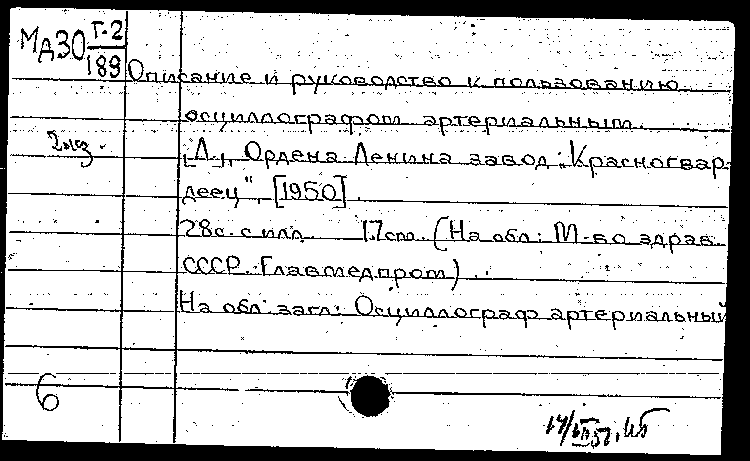 МдЗО Г-2
189
Описание и руководство к пользованию
осциллографом артериальным.
2 экз.
[Л], Ордена Ленина завод „Красногвар-
деец“, [1950].
28с. с илл. 17см. (На обл: М-во здрав.
СССР. Главмедпром).
На обл. загл: Осциллограф артериальный
6